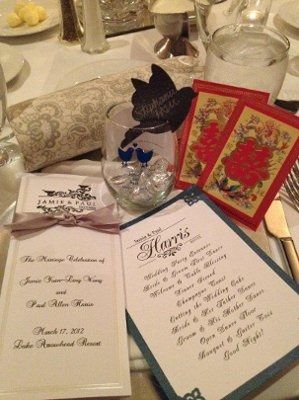 Stephanie
囍
囍
JAMIE & PAUL
The Marriage Celebration of
Jamie Yuan-Ling Wong
and
Paul Allen Harris
March 17, 2012
Lake Arrowhead Resort
Jamie and Paul
Harris
Wedding Party Entrance
Bride & Groom First Dance
Welcome & Table Blessing
Dinner Served
Champagne Toast
Cutting the Cake
Bride & Her Father Dance
Groom & His Mother Dance
Open Dance Floor
Bouquet & Garter Toss
Good Night!